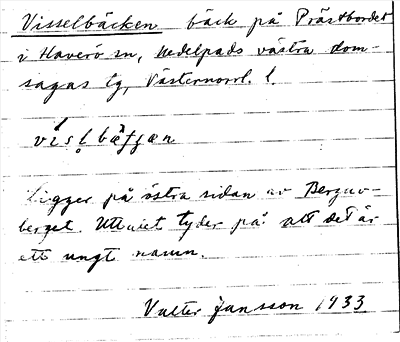 Visselbäcken bäck på Prästbordet
i Haverö sn, Medelpads västra dom-
sagas tg, Västernorrl. l.
visl̥bäʃʃan
Ligger på östra sidan av
berget. Uttalet tyder på att det är
ett ungt namn.
Valter Jansson 1933